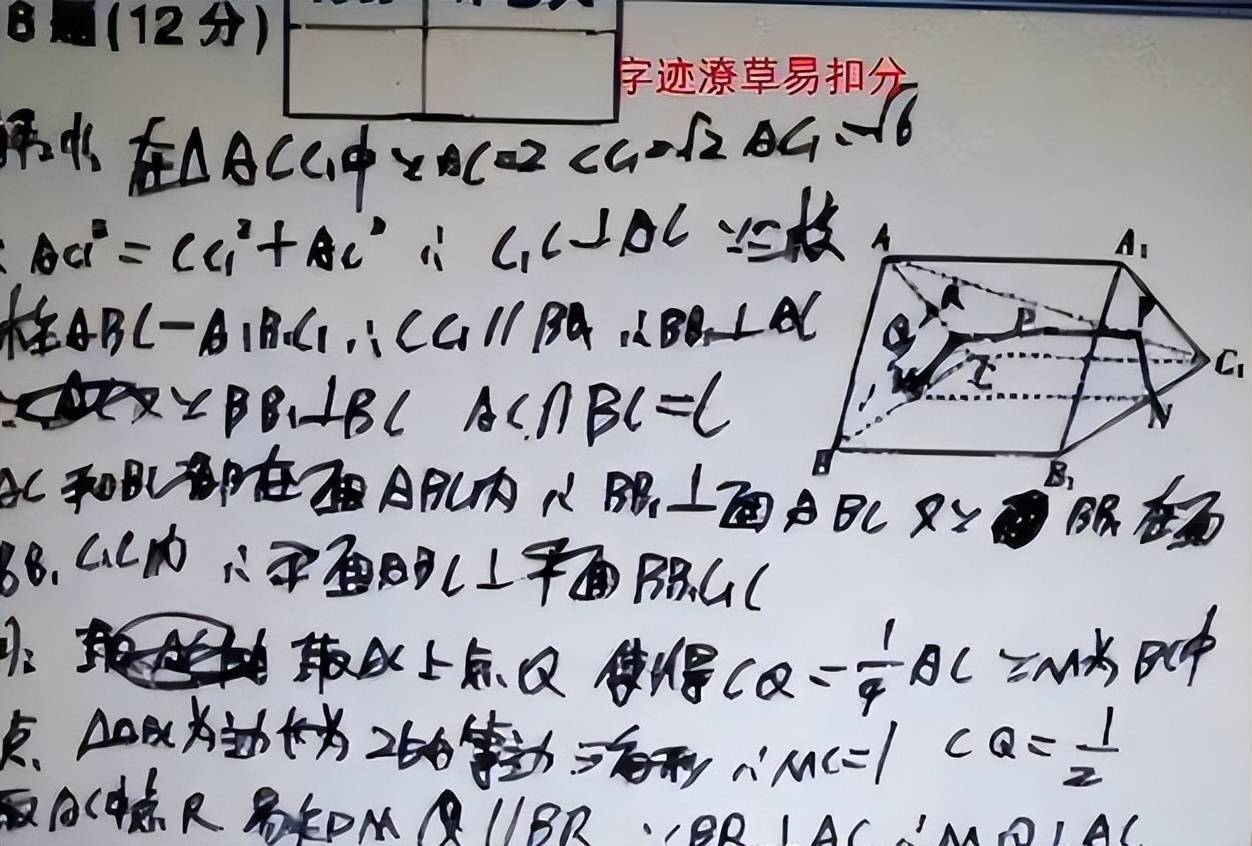 B题(12分)
字迹潦草易扣分
在△ACC₁中∵AC=2 CC₁=√2 AC₁=√6
∴AC₁²=CC₁²+AC² ∴C₁C⊥AC ∵三棱
柱ABC-A₁B₁C₁∴CC₁//BB₁∴BB₁⊥AC
∵BB₁⊥BC AC∩BC=C
AC和BC都在面ABC内∴BB₁⊥面ABC又∵BB₁在面
BB₁C₁C内∴平面ABC⊥平面BB₁C₁C
取AC上点Q 使得CQ=1/4AC∵M为BC中
点 △ABC为边长为2的等边三角形∴MC=1 CQ=1/2
取AC中点R 易知MQ//BR ∵BR⊥AC∴MQ⊥AC
A
A₁
R
P
P
Q
M
C₁
N
B
B₁